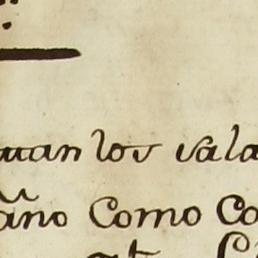 uan los sala
año Como Co